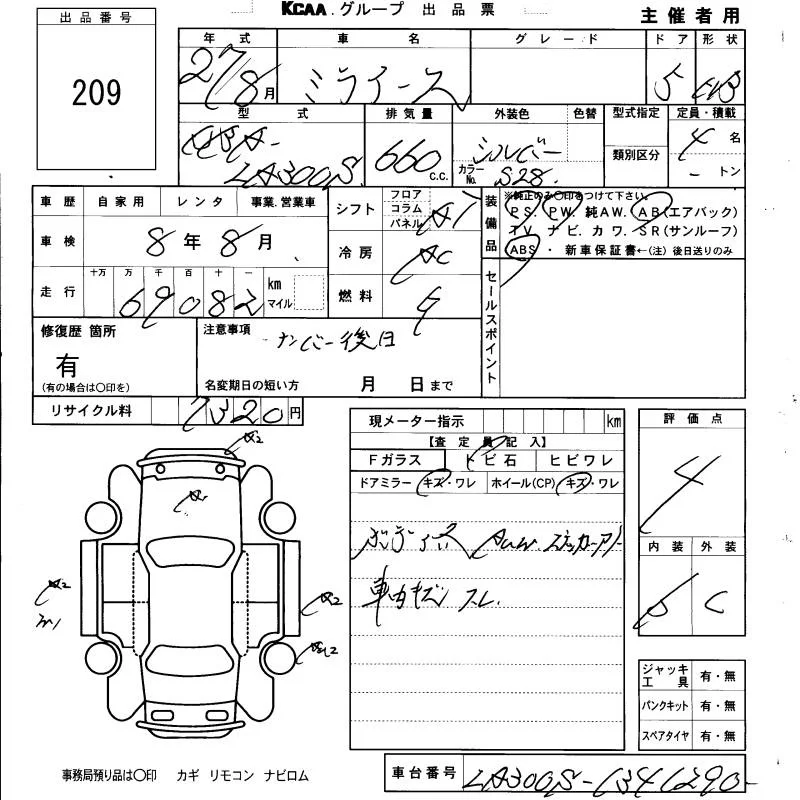 KCAA.グループ 出品票
主催者用
出品番号
209
年式 車名 グレード ドア 形状
27/8月 ミライース 5 HB
型式 排気量 外装色 色替 型式指定 定員・積載
DBA-
LA300S 660 c.c. シルバー カラーNo. S28 類別区分 4名
-トン
車歴 自家用 レンタ 事業.営業車
シフト フロア コラム パネル AT
装備品 ※純正のみ○印をつけて下さい。
PS. PW. 純AW. AB(エアバック)
TV. ナビ. カワ. SR(サンルーフ)
ABS ・ 新車保証書←(注) 後日送りのみ
車検 8年8月
冷房 AC
走行 十万 万 千 百 十 一 km マイル
69082
燃料
セールスポイント
修復歴 箇所
有
(有の場合は○印を)
注意事項 ナンバー後日
名変期日の短い方 月 日まで
リサイクル料 7320円
現メーター指示 km
【査定員記入】
Fガラス トビ石 ヒビワレ
ドアミラー キズ・ワレ ホイール(CP) キズ・ワレ
車内キズ スレ.
評価点
4
内装 外装
C
ジャッキ工具 有・無
パンクキット 有・無
スペアタイヤ 有・無
A2
A2
A2
事務局預り品は○印 カギ リモコン ナビロム
車台番号 LA300S-1341290-